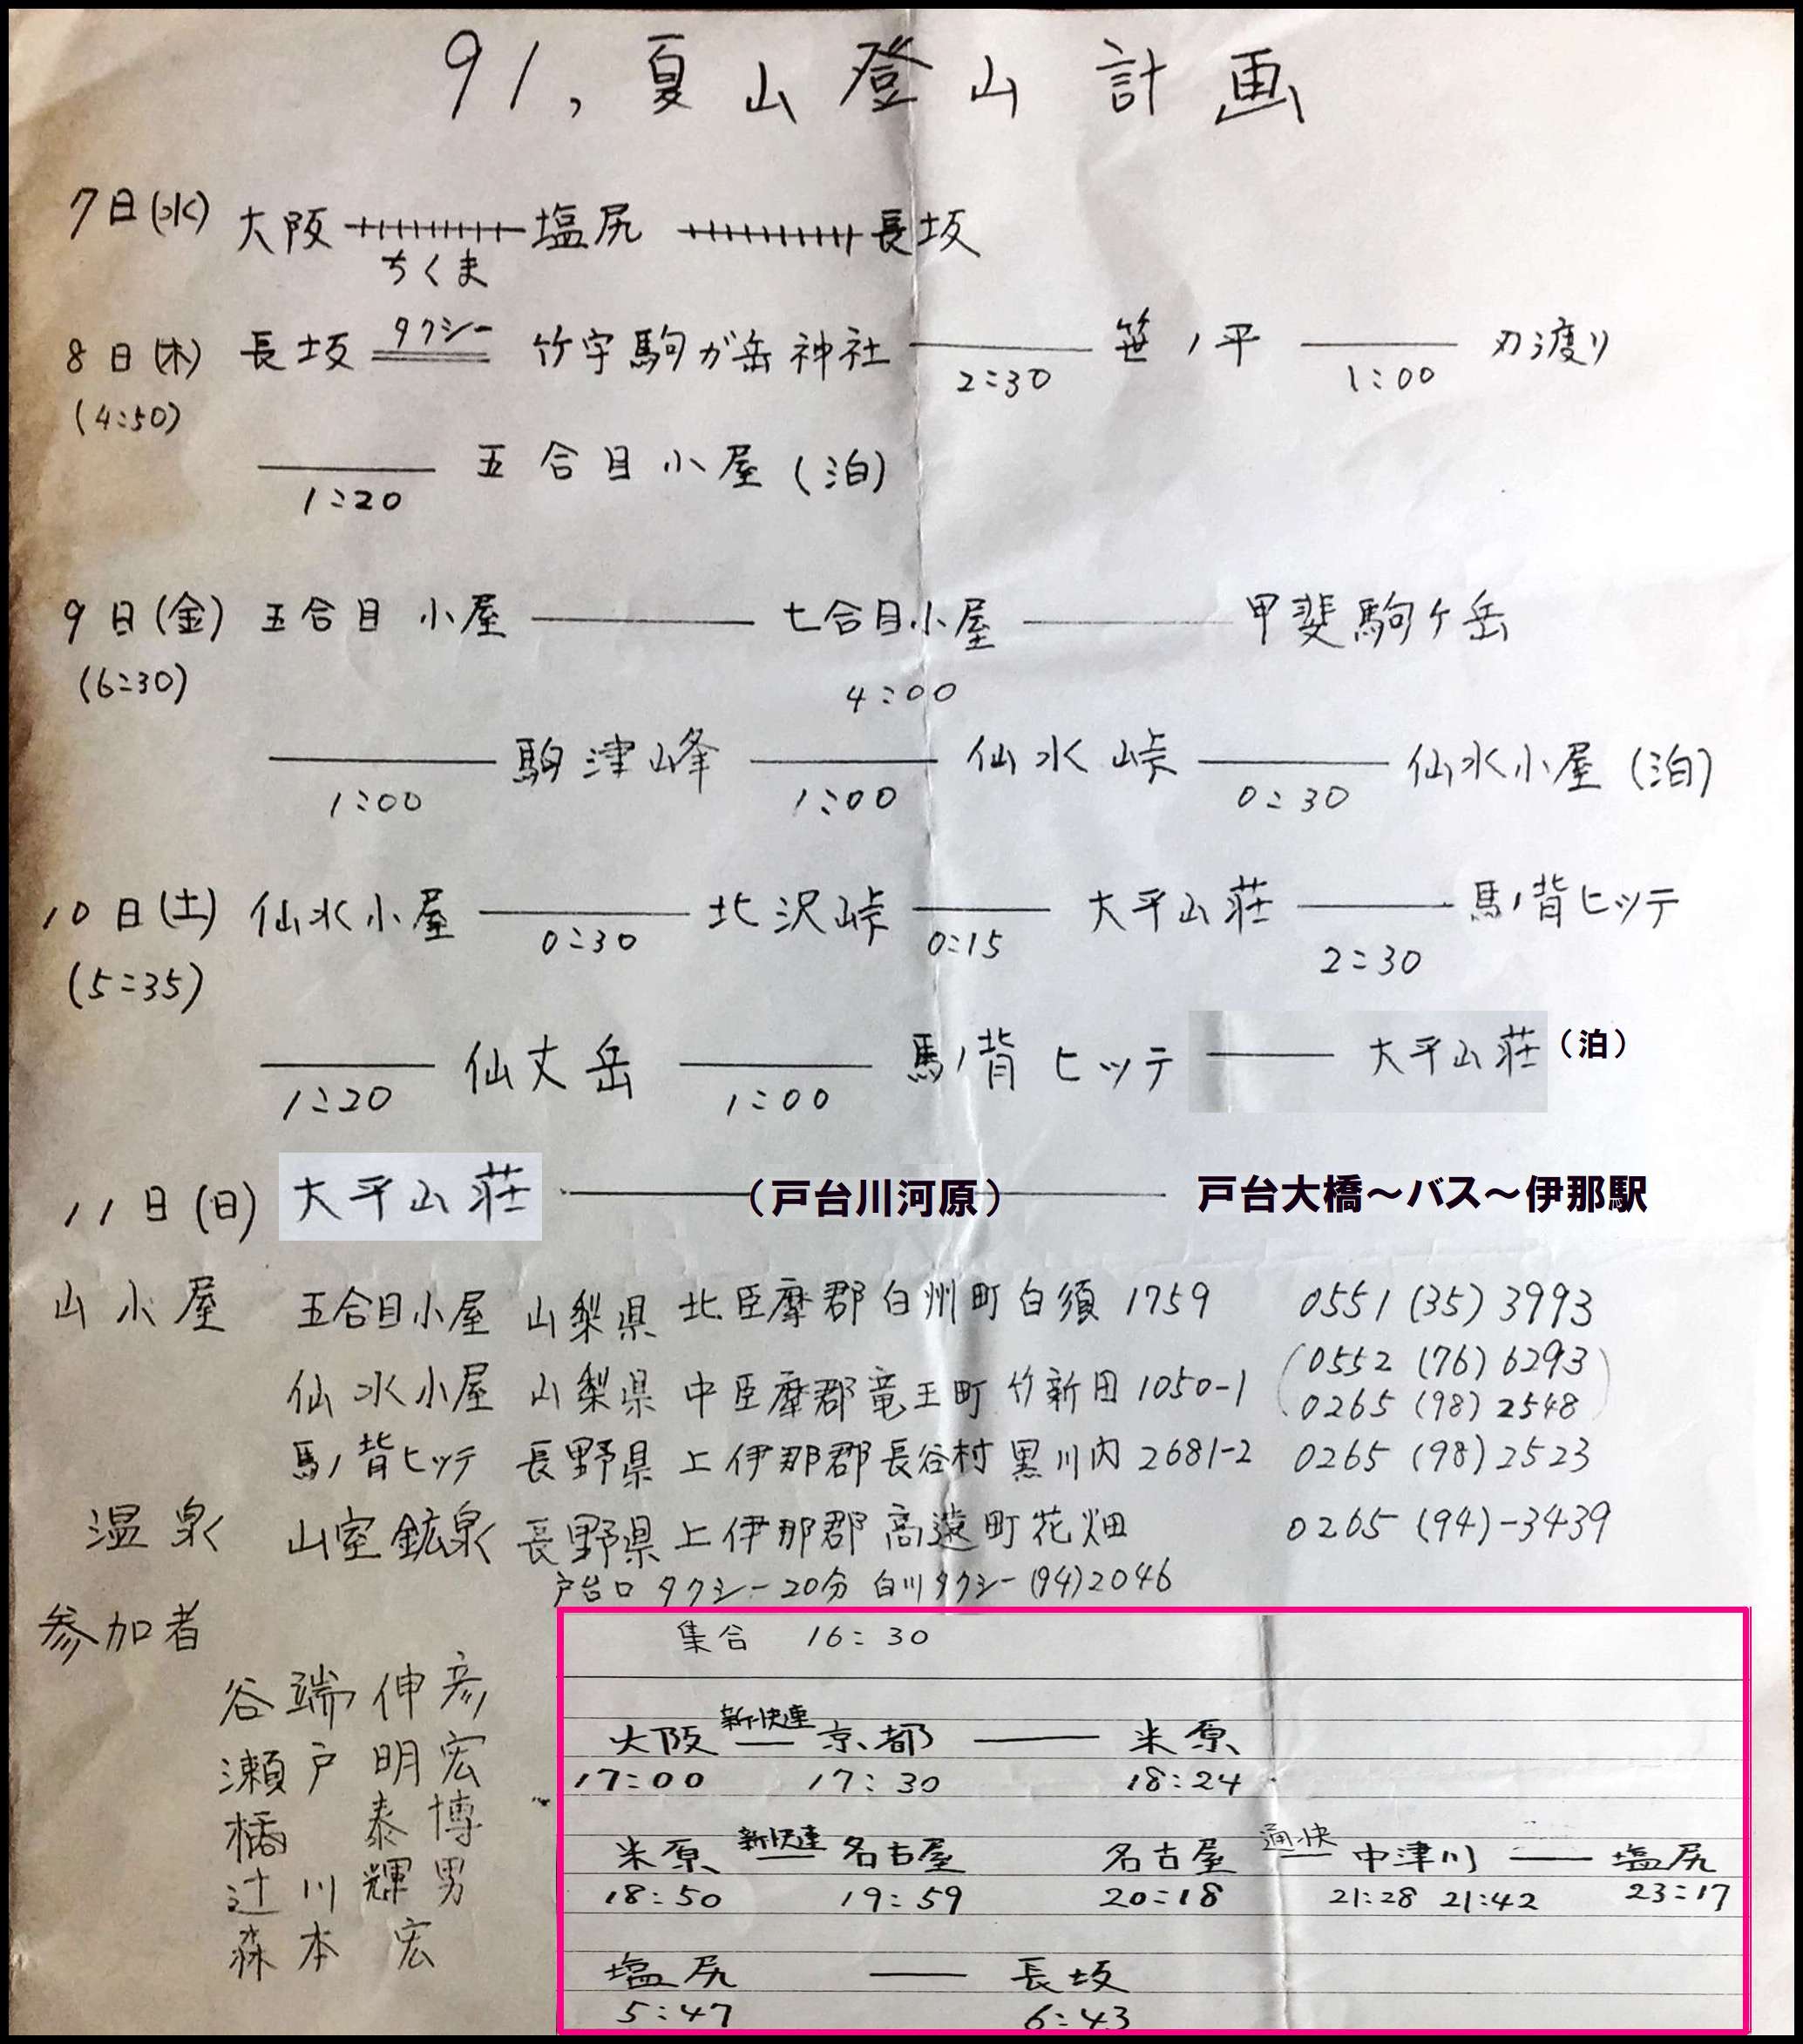 91,夏山登山計画
7日(水) 大阪 塩尻 長坂
ちくま
8日(木) 長坂 タクシー 竹宇駒が岳神社 笹ノ平 刃渡り
2:30 1:00
(4:50)
五合目小屋(泊)
1:20
9日(金) 五合目小屋 七合目小屋 甲斐駒ヶ岳
(6:30) 4:00
駒津峰 仙水峠 仙水小屋(泊)
1:00 1:00 0:30
10日(土) 仙水小屋 北沢峠 大平山荘 馬ノ背ヒッテ
0:30 0:15 2:30
(5:35)
仙丈岳 馬ノ背ヒッテ 大平山荘(泊)
1:20 1:00
11日(日) 大平山荘 (戸台川河原) 戸台大橋~バス~伊那駅
山小屋 五合目小屋 山梨県 北臣摩郡白州町白須1759 0551(35)3993
仙水小屋 山梨県 中臣摩郡竜王町竹新田1050-1 (0552(76)6293
0265(98)2548)
馬ノ背ヒッテ 長野県 上伊那郡長谷村黒川内2681-2 0265(98)2523
温泉 山室鉱泉 長野県 上伊那郡高遠町花畑 0265(94)-3439
戸台口 タクシー20分 白川タクシー(94)2046
参加者
谷端伸彦
瀬戸明宏
橘 泰博
辻川輝男
森本 宏
集合 16:30
大阪 新快速 京都 米原
17:00 17:30 18:24
米原 新快速 名古屋 名古屋 通快 中津川 塩尻
18:50 19:59 20:18 21:28 21:42 23:17
塩尻 長坂
5:47 6:43